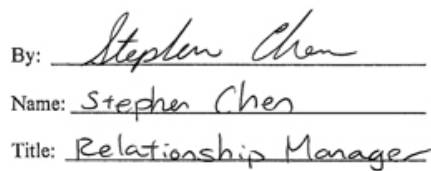 By: Stephen Chen
Name: Stephen Chen
Title: Relationship Manager